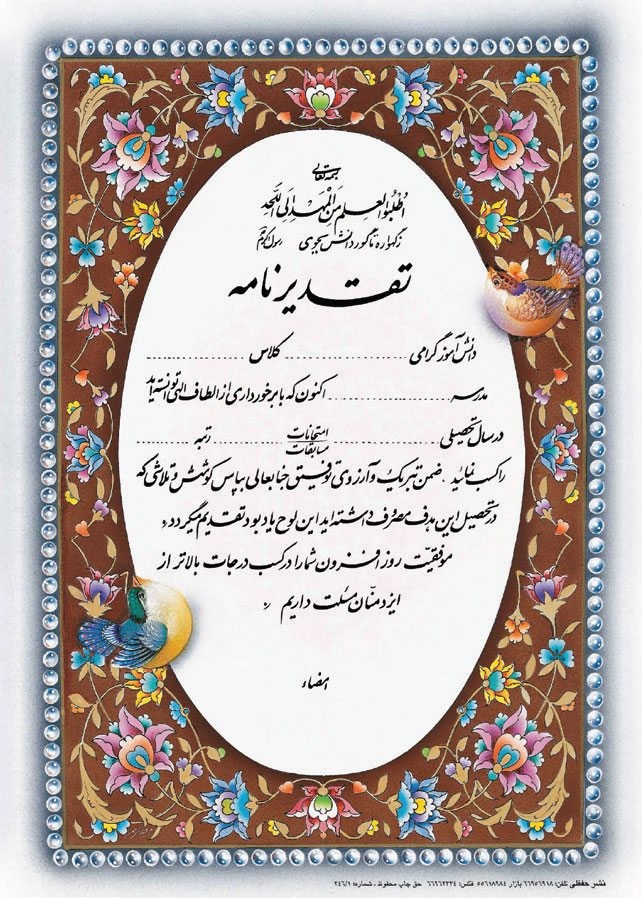 بسمه تعالی
اُطْلُبُواالعِلمَ مِنَ المَهْدِ اِلَی اللَّحد
زگهواره تا گور دانش بجوی رسول اکرم
تقدیرنامه
دانش آموز گرامی .................... کلاس ....................
مدرسه .................... اکنون که با برخورداری از الطاف الهی توانسته‌اید
در سال تحصیلی .................... امتحانات .......... رتبه ..........
مسابقات
را کسب نمائید . ضمن تبریک و آرزوی توفیق جنابعالی بپاس کوشش و تلاشی که
در تحصیل این هدف مصروف داشته اید این لوح یادبود تقدیم میگردد
موفقیّت روز افزون شما را در کسب درجات بالاتر از
ایزد منّان مسئلت داریم
امضاء
نشر حفظی تلفن: ۶۶۹۵۶۹۱۸ بازار ۵۵۶۱۸۹۸۴ فکس: ۶۶۹۶۲۳۳۴ حق چاپ محفوظ ، شماره: ۲۴۶/۱